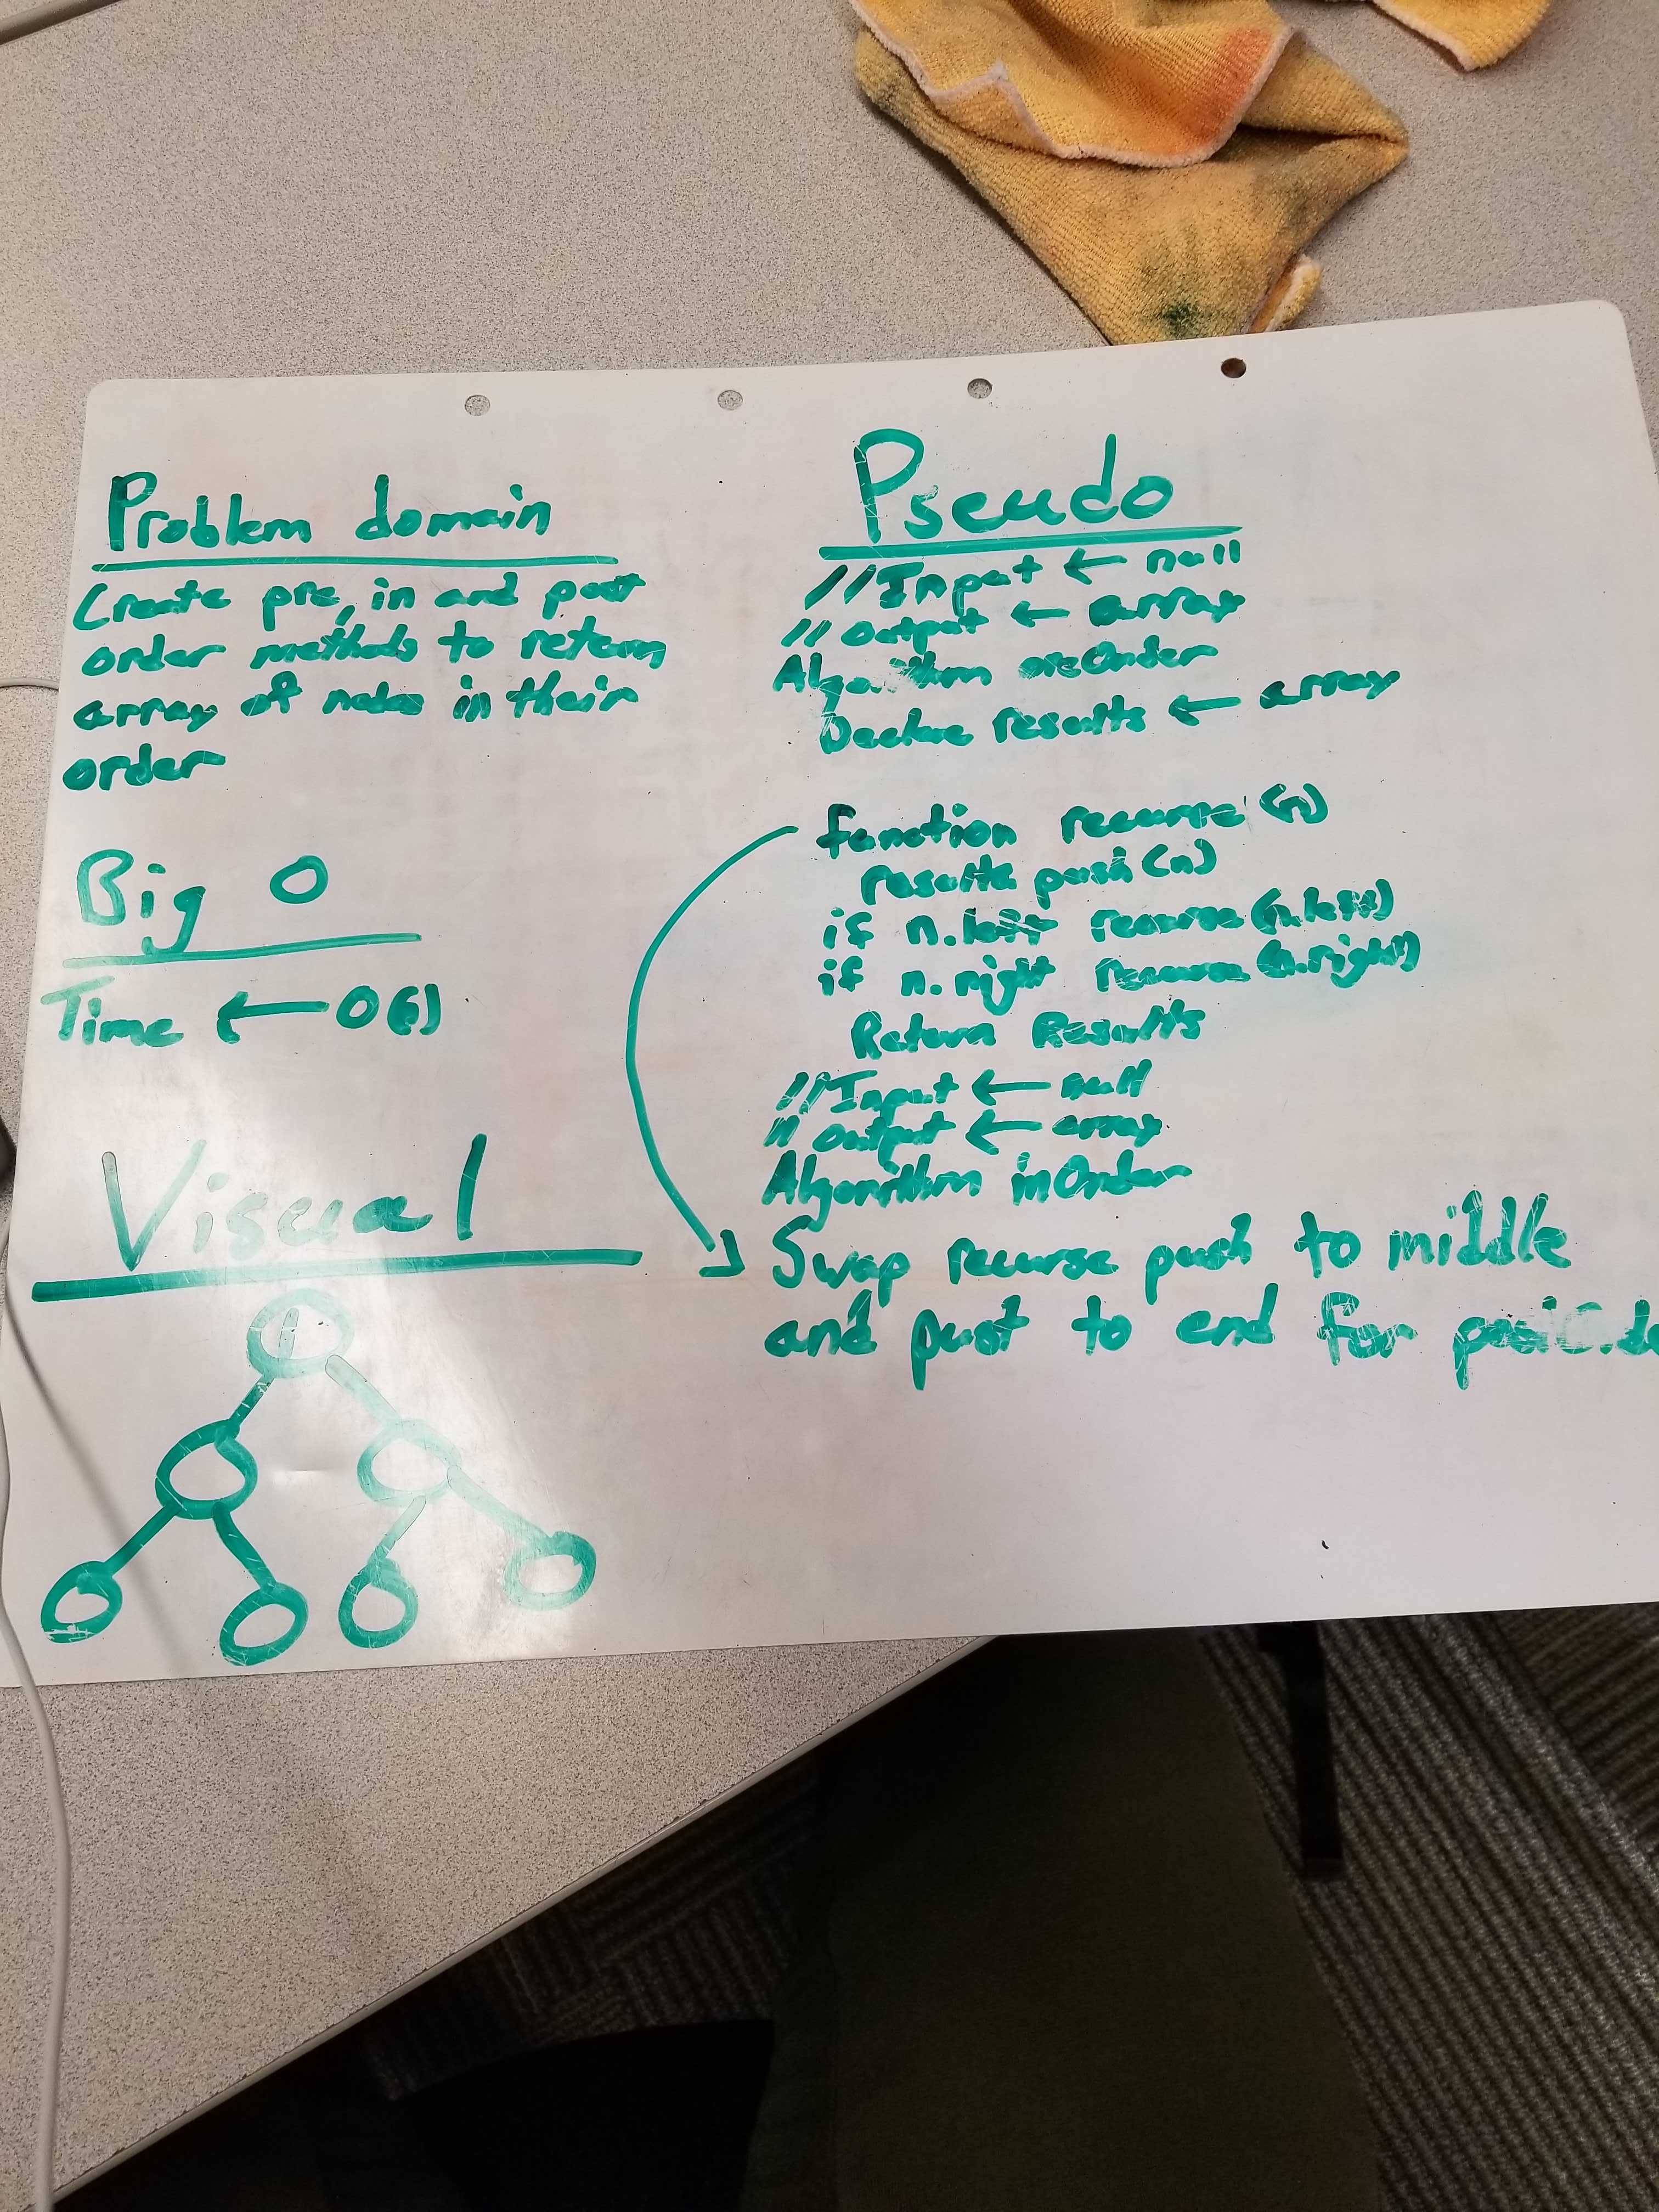 Problem domain
Create pre, in and post
order methods to return
array of nodes in their
order
Big O
Time ← O(1)
Visual
1
Pseudo
//Input ← null
//output ← array
Algorithm preOrder
Declare results ← array
function recurse (n)
results push (n)
if n.left recurse (n.left)
if n.right recurse (n.right)
Return Results
//Input ← null
// output ← array
Algorithm inOrder
Swap recurse push to middle
and post to end for